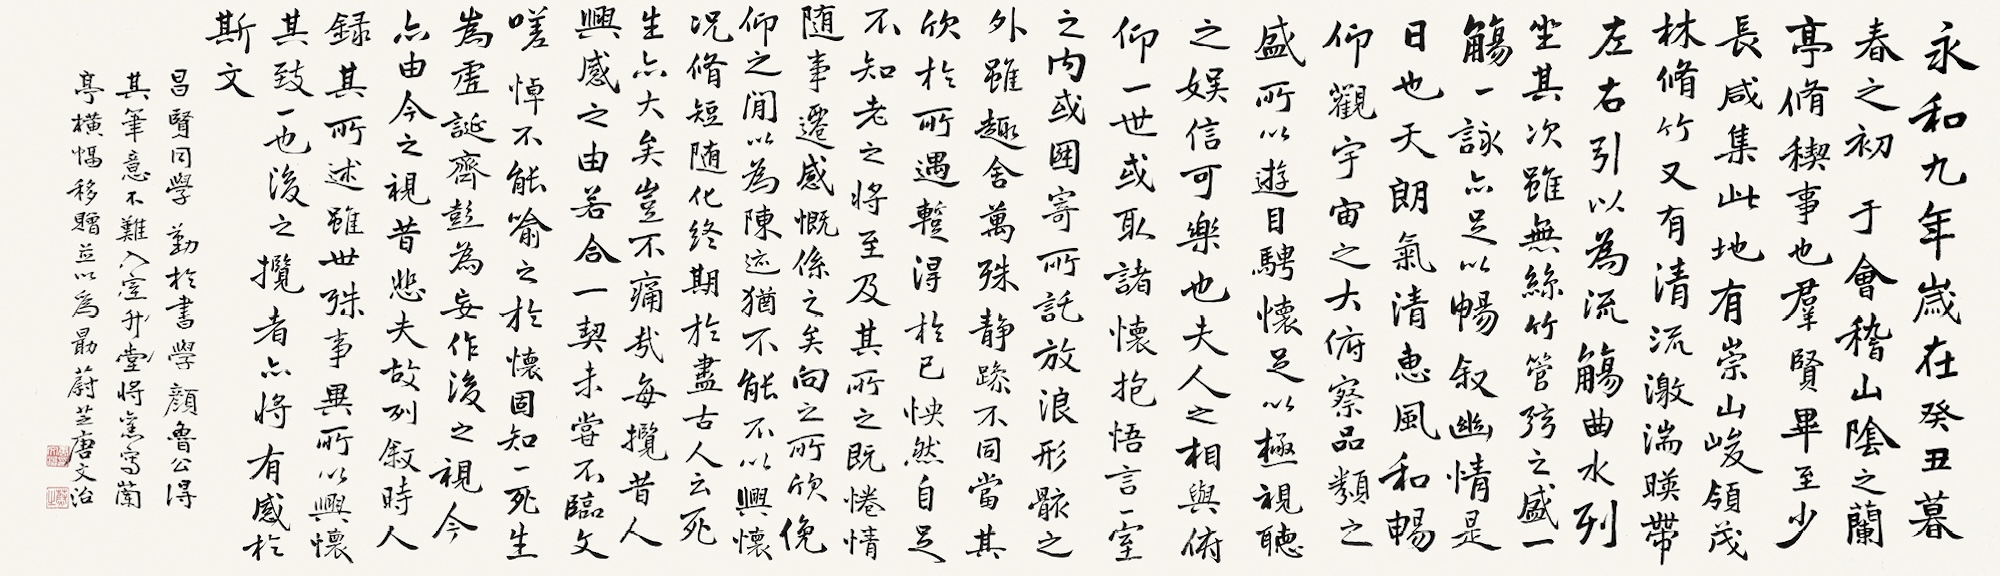 永和九年歲在癸丑暮
春之初于會稽山陰之蘭
亭脩稧事也羣賢畢至少
長咸集此地有崇山峻領茂
林脩竹又有清流激湍暎帶
左右引以為流觴曲水列
坐其次雖無絲竹管弦之盛一
觴一詠亦足以暢叙幽情是
日也天朗氣清惠風和暢
仰觀宇宙之大俯察品類之
盛所以遊目騁懷足以極視聽
之娛信可樂也夫人之相與俯
仰一世或取諸懷抱悟言一室
之内或因寄所託放浪形骸之
外雖趣舍萬殊静躁不同當其
欣於所遇暫得於己怏然自足
不知老之將至及其所之既惓情
随事遷感慨係之矣向之所欣俛
仰之閒以為陳迹猶不能不以興懷
況脩短随化終期於盡古人云死
生亦大矣豈不痛哉每攬昔人
興感之由若合一契未嘗不臨文
嗟悼不能喻之於懷固知一死生
為虛誕齊彭為妄作後之視今
亦由今之視昔悲夫故列叙時人
録其所述雖世殊事異所以興懷
其致一也後之攬者亦將有感於
斯文
昌賢同學勤於書學顏魯公得
其筆意不難入室升堂將舊寫蘭
亭橫幅移贈並以為勗蔚芝唐文治